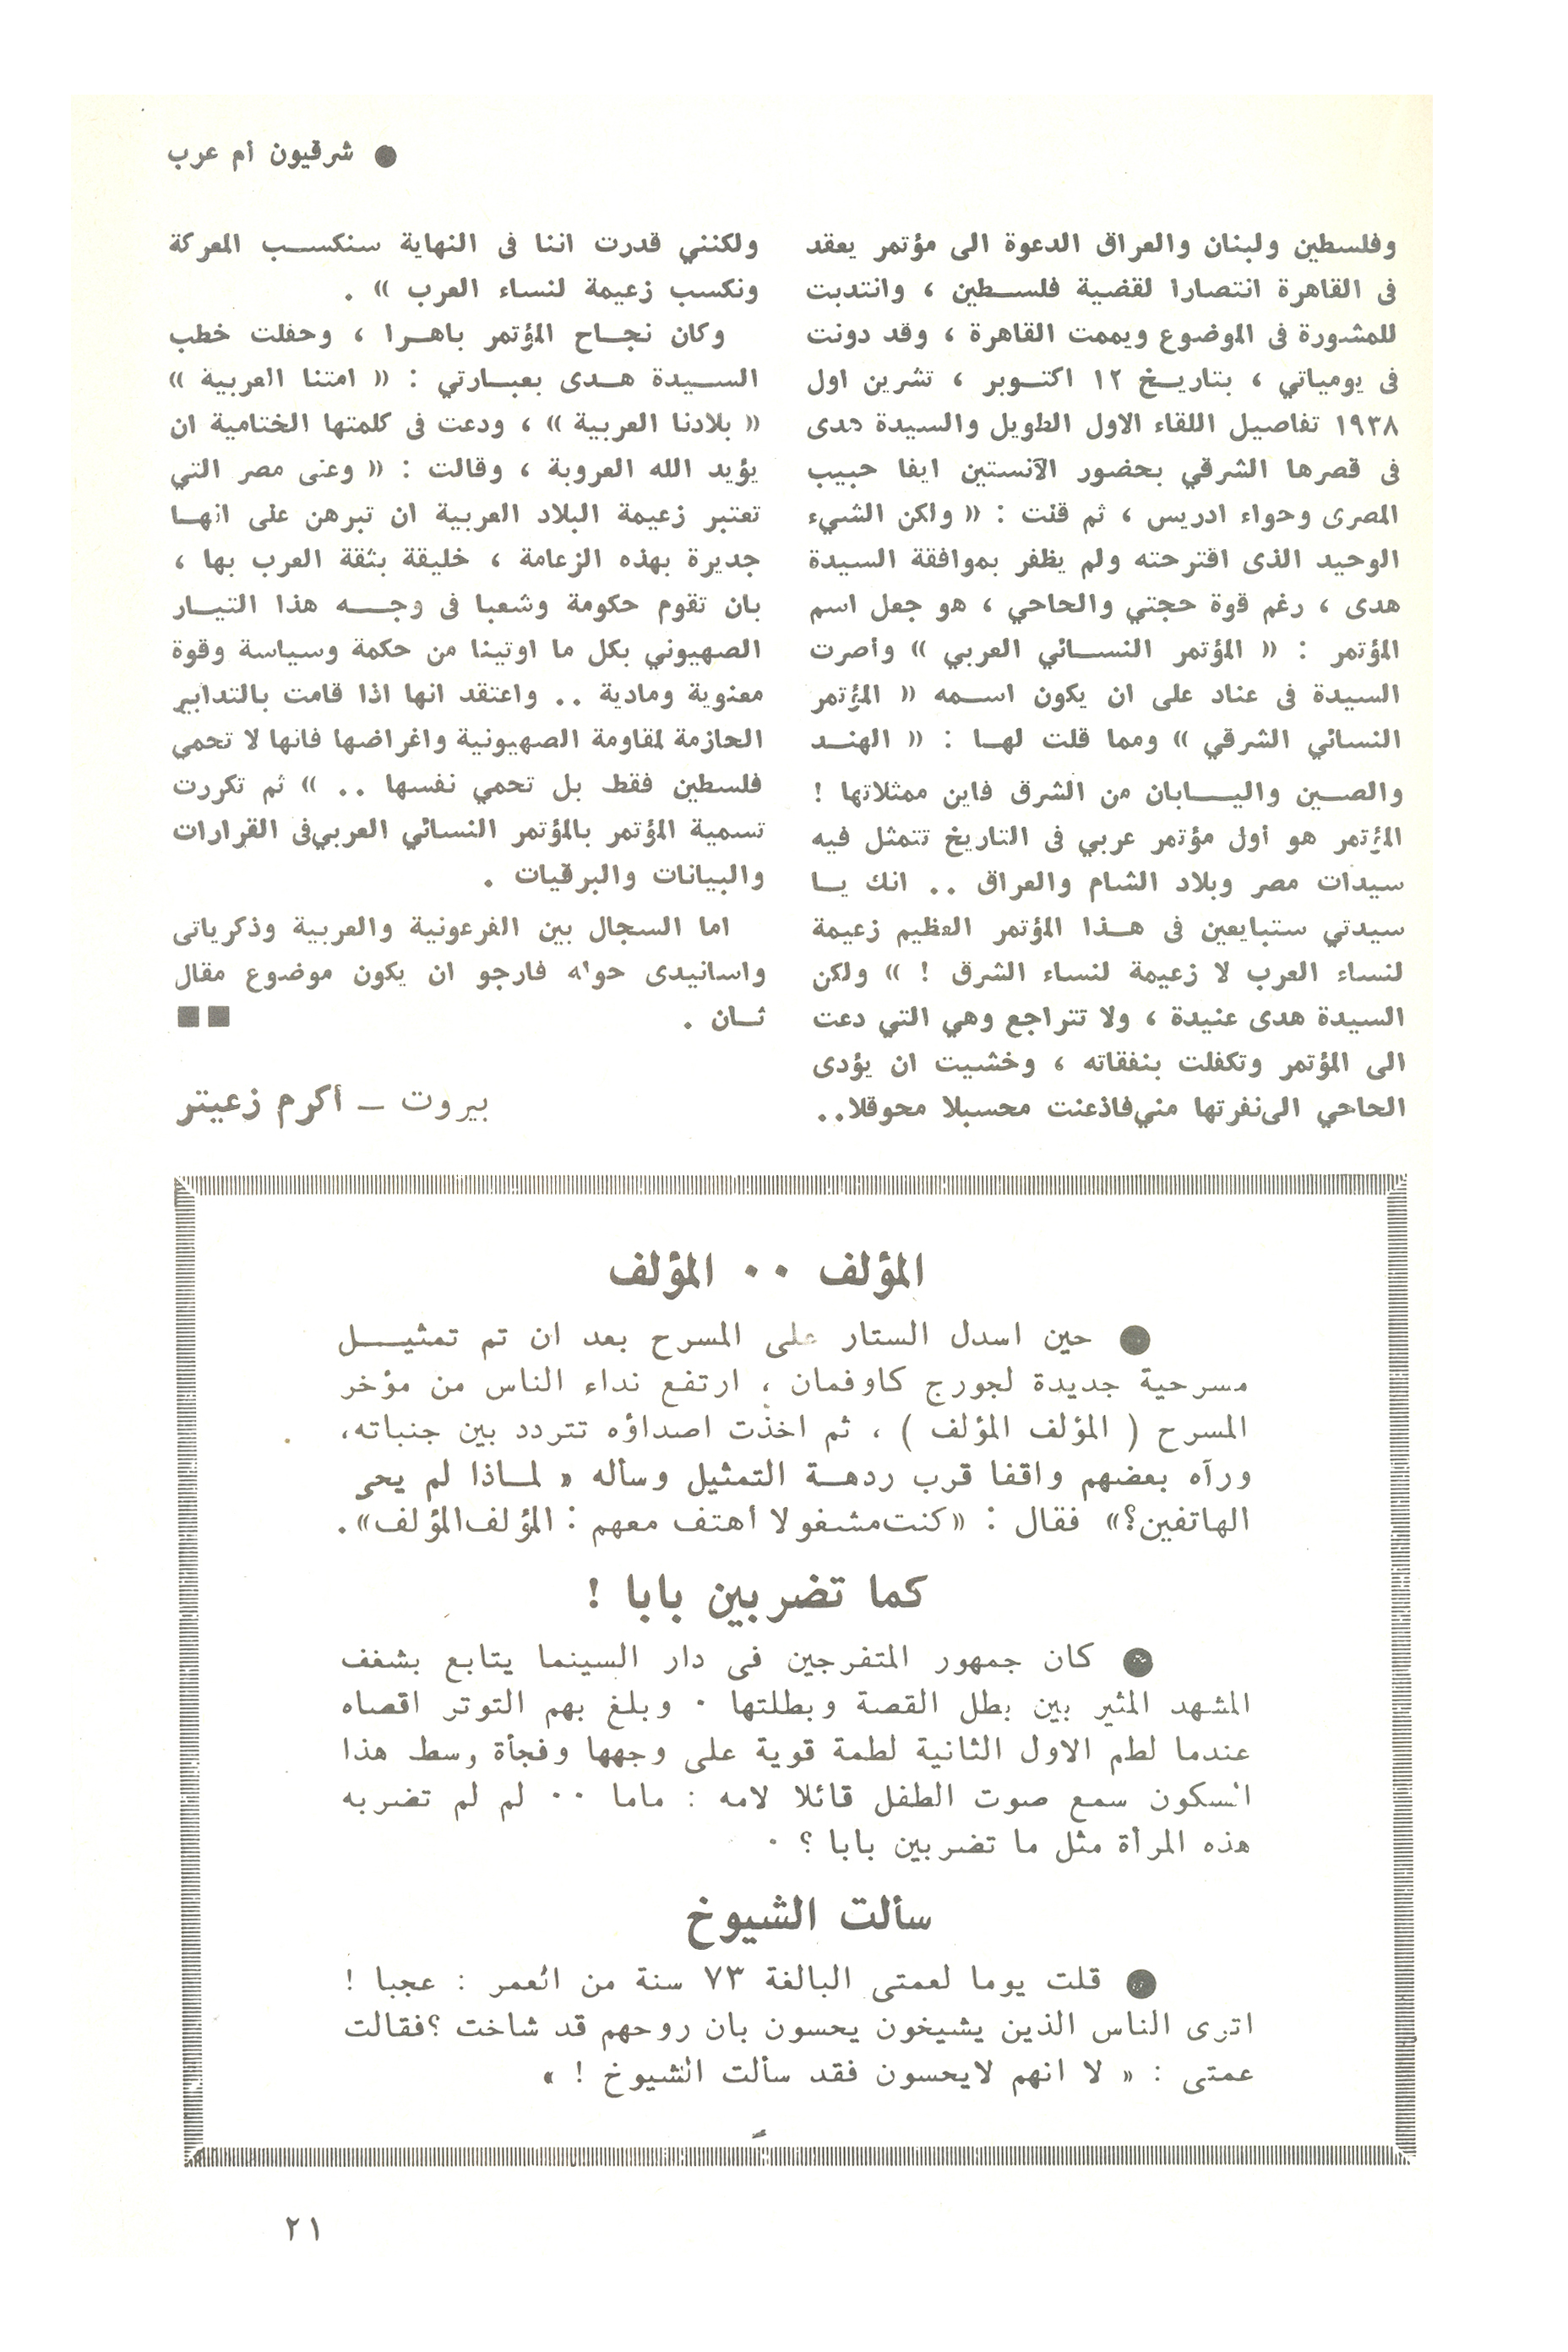 ● شرقيون أم عرب
وفلسطين ولبنان والعراق الدعوة الى مؤتمر يعقد
فى القاهرة انتصارا لقضية فلسطين ، وانتدبت
للمشورة فى الموضوع ويممت القاهرة ، وقد دونت
فى يومياتي ، بتاريخ ١٢ اكتوبر ، تشرين اول
١٩٣٨ تفاصيل اللقاء الاول الطويل والسيدة هدى
فى قصرها الشرقي بحضور الآنستين ايفا حبيب
المصرى وحواء ادريس ، ثم قلت : « ولكن الشيء
الوحيد الذى اقترحته ولم يظفر بموافقة السيدة
هدى ، رغم قوة حجتي والحاحي ، هو جعل اسم
المؤتمر : « المؤتمر النسائي العربي » وأصرت
السيدة فى عناد على ان يكون اسمه « المؤتمر
النسائي الشرقي » ومما قلت لها : « الهند
والصين واليابان من الشرق فاين ممثلاتها !
المؤتمر هو أول مؤتمر عربي فى التاريخ تتمثل فيه
سيدات مصر وبلاد الشام والعراق .. انك يا
سيدتي ستبايعين فى هذا المؤتمر العظيم زعيمة
لنساء العرب لا زعيمة لنساء الشرق ! » ولكن
السيدة هدى عنيدة ، ولا تتراجع وهي التي دعت
الى المؤتمر وتكفلت بنفقاته ، وخشيت ان يؤدى
الحاحي الى نفرتها مني فاذعنت محسبلا محوقلا..
ولكنني قدرت اننا فى النهاية سنكسب المعركة
ونكسب زعيمة لنساء العرب » .
وكان نجاح المؤتمر باهرا ، وحفلت خطب
السيدة هدى بعبارتي : « امتنا العربية »
« بلادنا العربية » ، ودعت فى كلمتها الختامية ان
يؤيد الله العروبة ، وقالت : « وعلى مصر التي
تعتبر زعيمة البلاد العربية ان تبرهن على انها
جديرة بهذه الزعامة ، خليقة بثقة العرب بها ،
بان تقوم حكومة وشعبا فى وجه هذا التيار
الصهيوني بكل ما اوتينا من حكمة وسياسة وقوة
معنوية ومادية .. واعتقد انها اذا قامت بالتدابير
الحازمة لمقاومة الصهيونية واغراضها فانها لا تحمي
فلسطين فقط بل تحمي نفسها .. » ثم تكررت
تسمية المؤتمر بالمؤتمر النسائي العربي فى القرارات
والبيانات والبرقيات .
اما السجال بين الفرعونية والعربية وذكرياتى
واسانيدى حوله فارجو ان يكون موضوع مقال
ثان . ■■
بيروت – أكرم زعيتر
المؤلف ٠٠ المؤلف
● حين اسدل الستار على المسرح بعد ان تم تمثيل
مسرحية جديدة لجورج كاوفمان ، ارتفع نداء الناس من مؤخر
المسرح ( المؤلف المؤلف ) ، ثم اخذت اصداؤه تتردد بين جنباته،
ورآه بعضهم واقفا قرب ردهة التمثيل وسأله « لماذا لم يحى
الهاتفين؟» فقال : «كنت مشغولا أهتف معهم : المؤلف المؤلف».
كما تضربين بابا !
● كان جمهور المتفرجين فى دار السينما يتابع بشغف
المشهد المثير بين بطل القصة وبطلتها ٠ وبلغ بهم التوتر اقصاه
عندما لطم الاول الثانية لطمة قوية على وجهها وفجأة وسط هذا
السكون سمع صوت الطفل قائلا لامه : ماما ٠٠ لم لم تضربه
هذه المرأة مثل ما تضربين بابا ؟ ٠
سألت الشيوخ
● قلت يوما لعمتى البالغة ٧٣ سنة من العمر : عجبا !
اترى الناس الذين يشيخون يحسون بان روحهم قد شاخت ؟فقالت
عمتى : « لا انهم لايحسون فقد سألت الشيوخ ! »
٢١